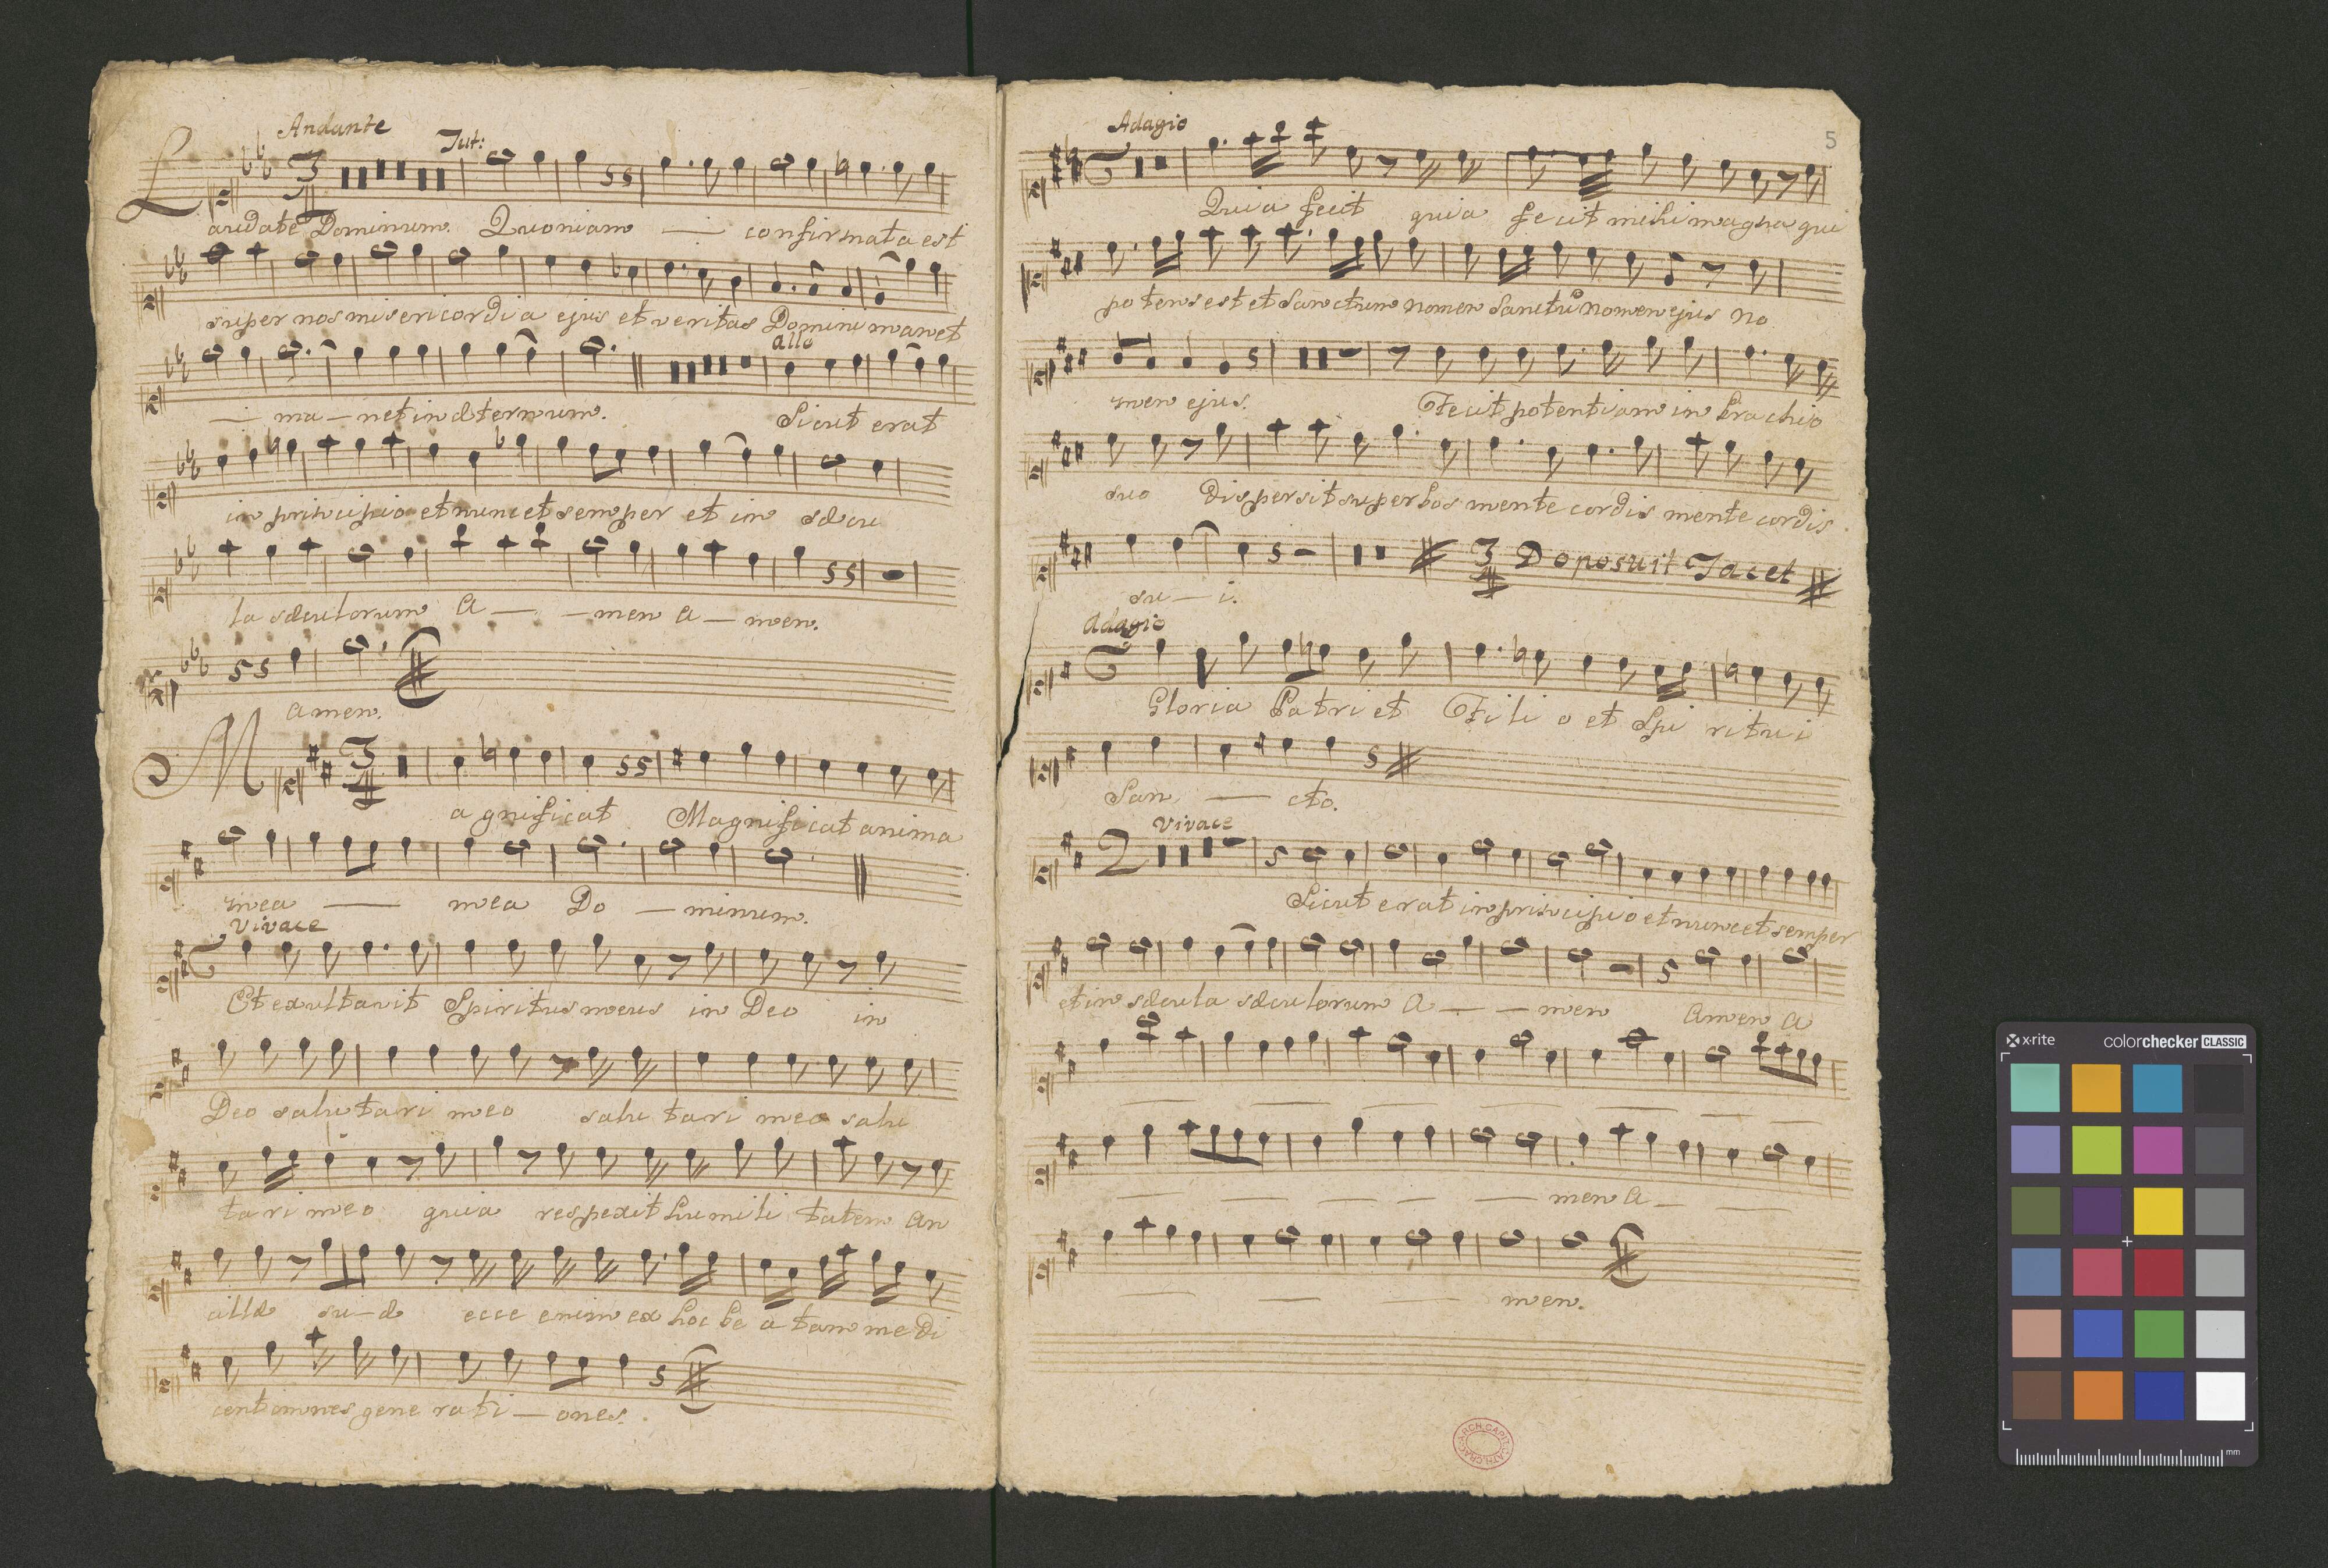 Andante
Tut:
Laudate Dominum. Quoniam — confirmata est
super nos misericordia ejus et veritas Domini manet
allo
— ma — net in æternum. Sicut erat
in principio et nunc et semper et in sæcu
la sæculorum A — — men a — men.
amen.
Magnificat Magnificat anima
mea — mea Do — minum.
Vivace
Et exultavit Spiritus meus in Deo in
Deo salutari meo salutari meo salu
tari meo quia respexit humilitatem an
cillæ su — æ ecce enim ex hoc beatam me di
cent omnes generati — ones.
5
Adagio
Quia fecit quia fecit mihi magna qui
potens est et Sanctum nomen Sanctũ nomen ejus no
men ejus. Fecit potentiam in brachio
suo dispersit superbos mente cordis mente cordis
su — i. 3/4 Doposuit Tacet
Adagio
Gloria Patri et Filio et Spiritui
San — cto.
Vivace
2
Sicut erat in principio et nunc et semper
et in sæcula sæculorum A — — men Amen A
— — — — — —
— — — — — men A —
— — — men.
ARCH. CAPIT. CATH. CRAC.
x-rite colorchecker CLASSIC
mm